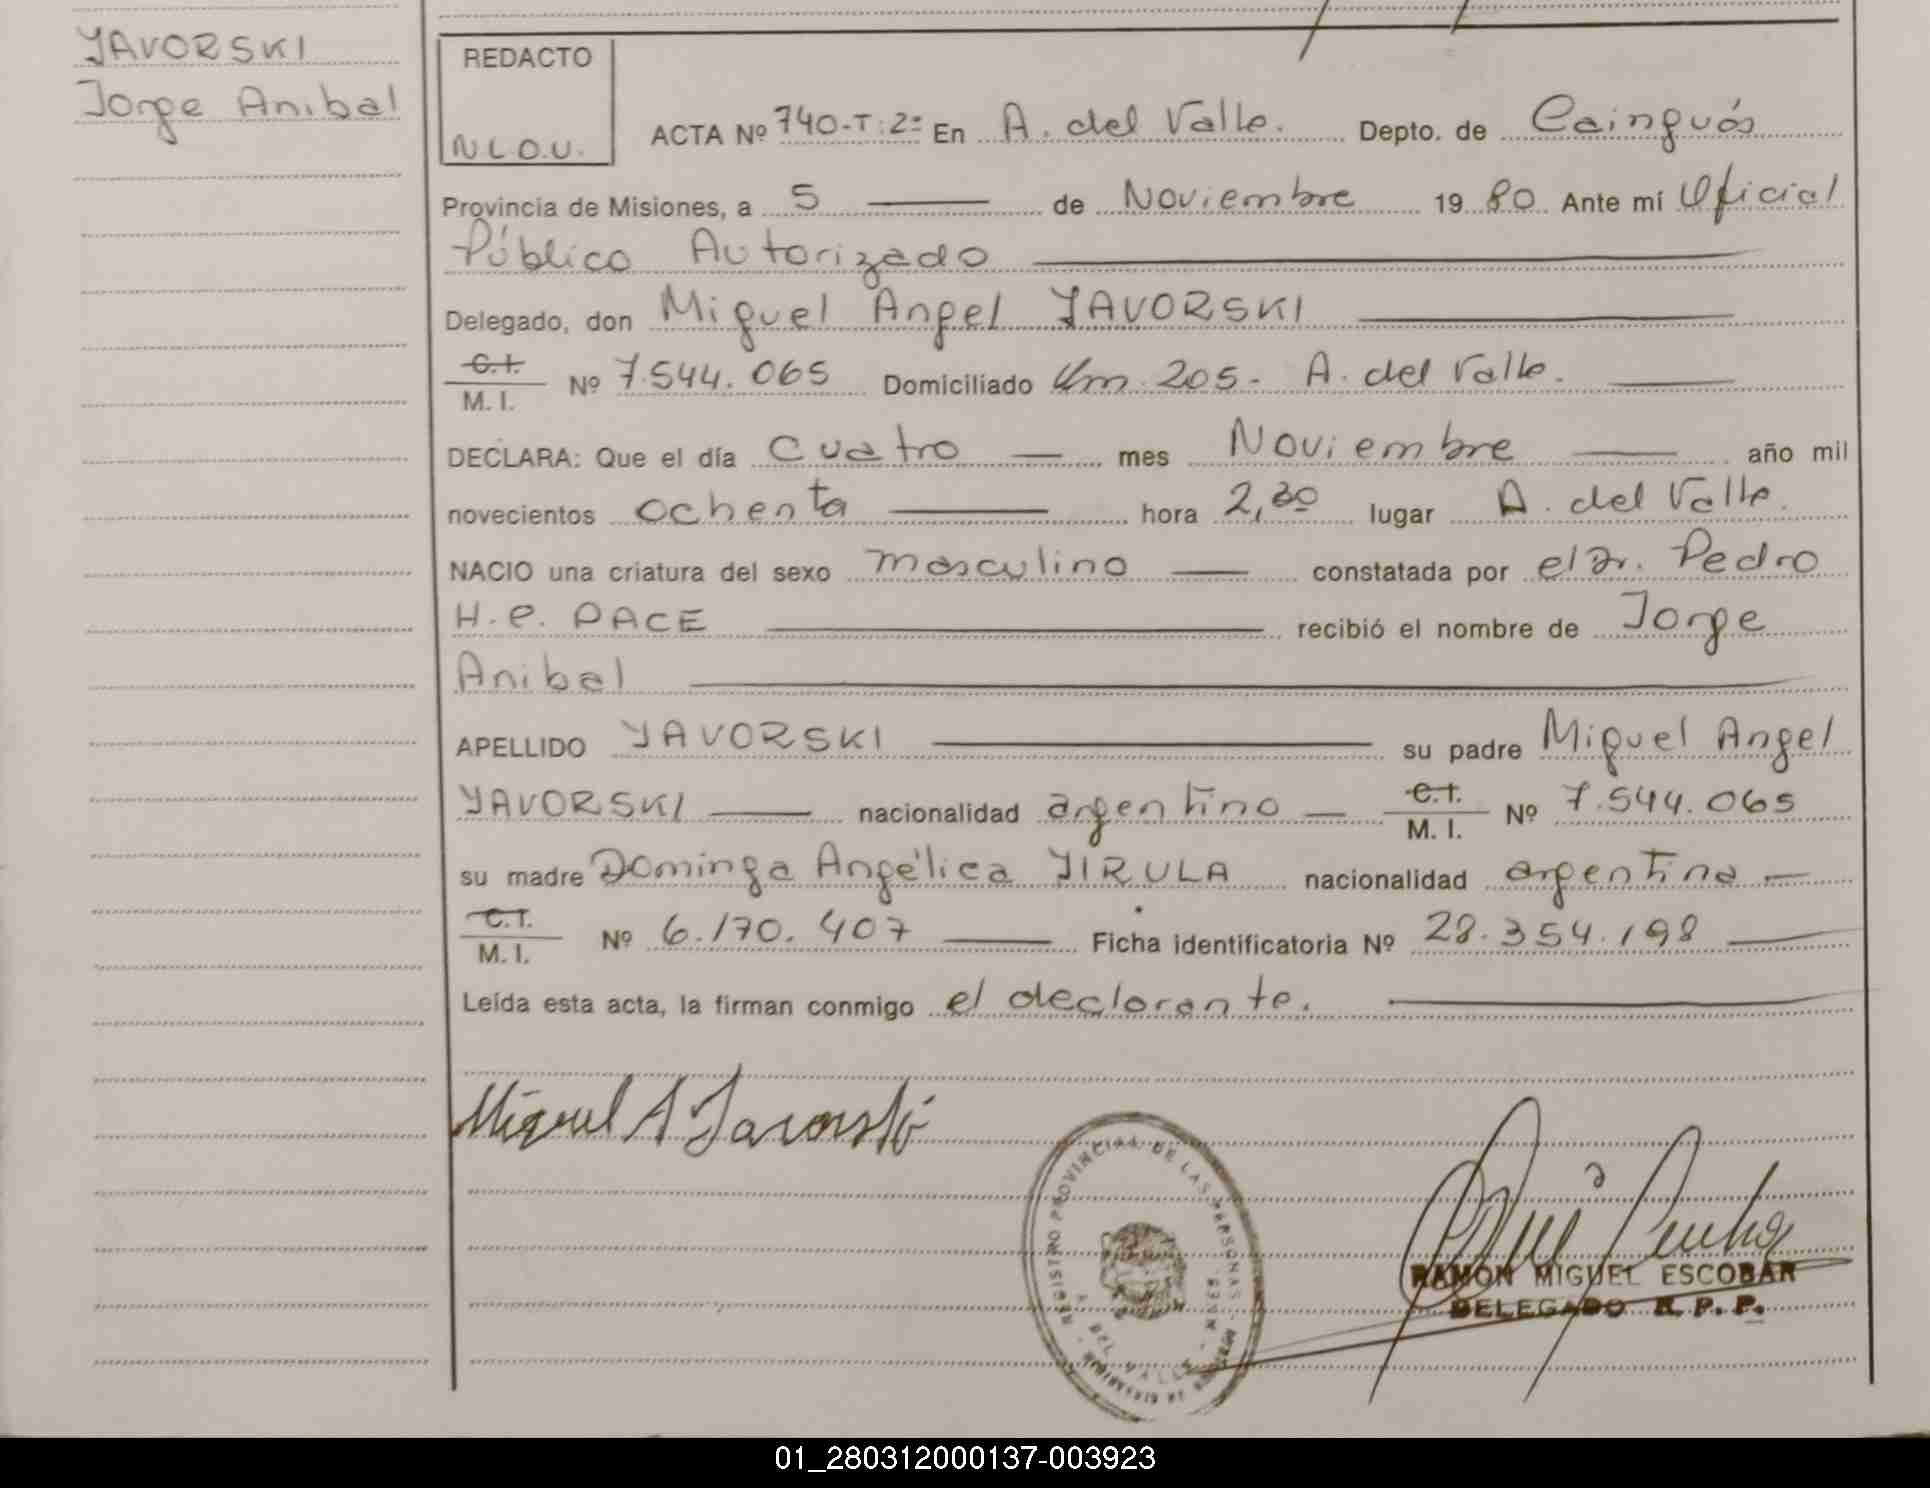 YAVORSKI
Jorge Anibal
REDACTO
N.L.O.U.
ACTA Nº 740-T:2º En A. del Valle. Depto. de Cainguás
Provincia de Misiones, a 5 de Noviembre 1980 Ante mí Oficial
Público Autorizado
Delegado, don Miguel Angel YAVORSKI
C.I. M.I. Nº 7.544.065 Domiciliado Km. 205- A. del Valle.
DECLARA: Que el día cuatro mes Noviembre año mil
novecientos ochenta hora 2,30 lugar A. del Valle.
NACIO una criatura del sexo masculino constatada por el Dr. Pedro
H.C. PACE recibió el nombre de Jorge
Anibal
APELLIDO YAVORSKI su padre Miguel Angel
YAVORSKI nacionalidad argentino C.I. M.I. Nº 7.544.065
su madre Dominga Angélica YIRULA nacionalidad argentina
C.I. M.I. Nº 6.170.407 Ficha identificatoria Nº 28.354.198
Leída esta acta, la firman conmigo el declarante.
Miguel A Javorski
REGISTRO PROVINCIAL DE LAS PERSONAS
A. DEL VALLE
RAMON MIGUEL ESCOBAR
DELEGADO R. P. P.
01_280312000137-003923